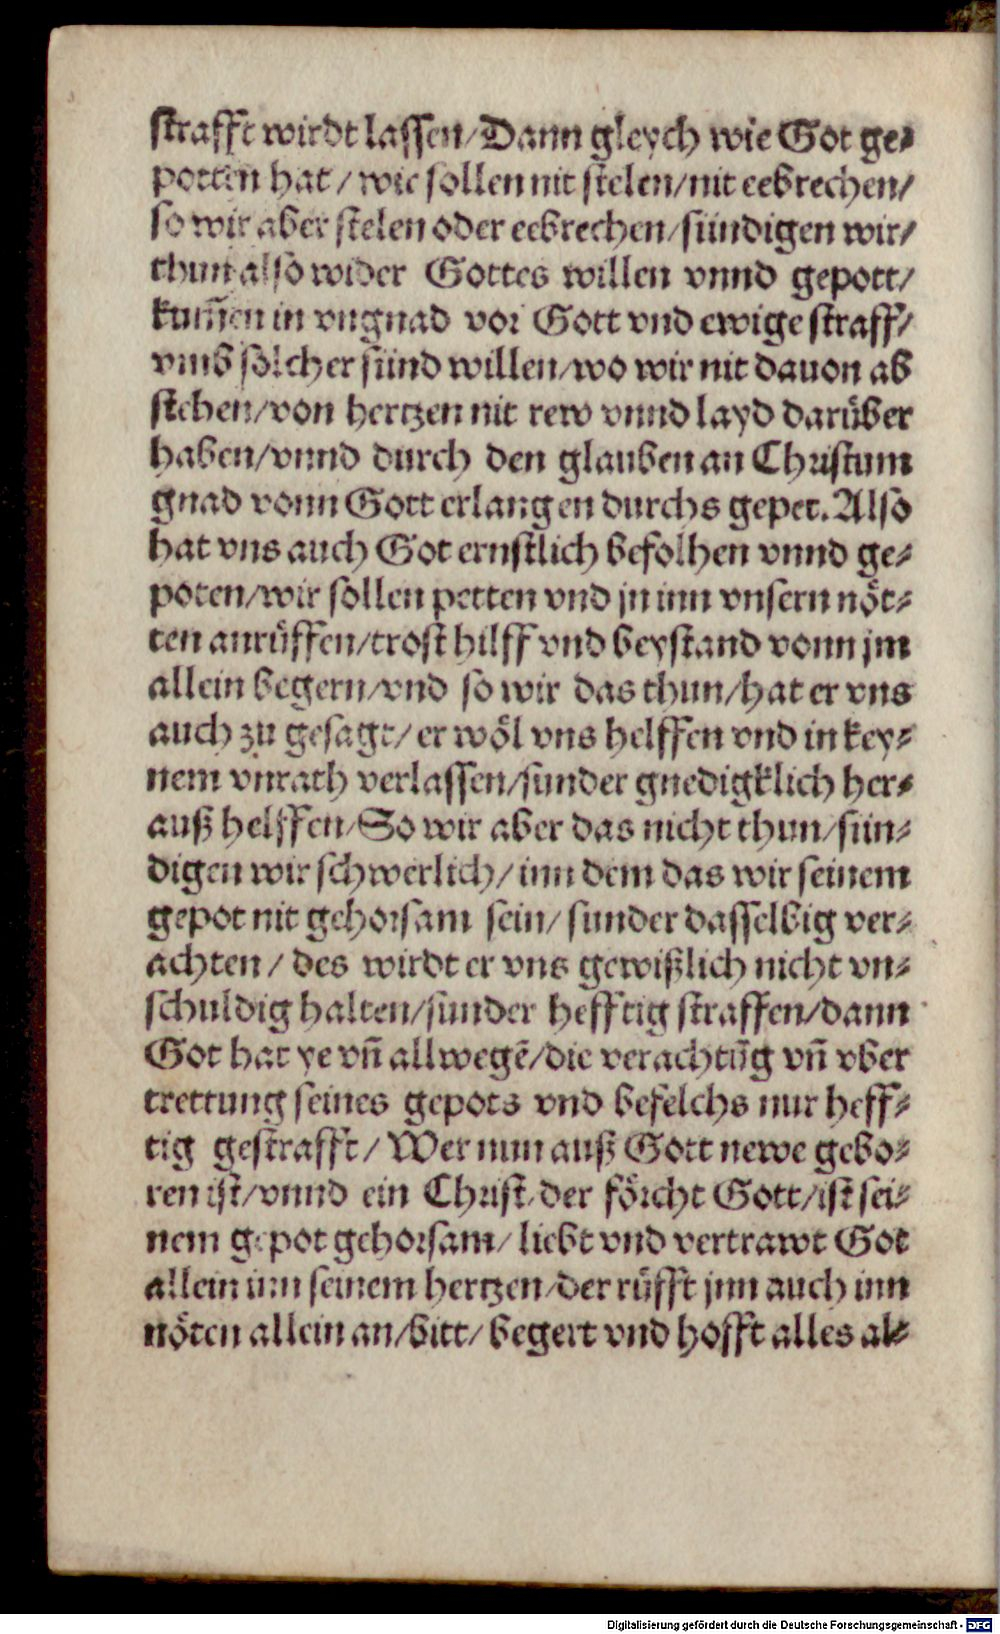 strafft wirdt lassen/Dann gleych wie Got ge-
potten hat / wie sollen nit stelen/nit eebrechen/
so wir aber stelen oder eebrechen/sündigen wir/
thun also wider Gottes willen vnnd gepott/
kum̄en in vngnad vor Gott vnd ewige straff/
vmb sölcher sünd willen/wo wir nit dauon ab
stehen/von hertzen nit rew vnnd layd darüber
haben/vnnd durch den glauben an Christum
gnad vonn Gott erlangen durchs gepet. Also
hat vns auch Got ernstlich befolhen vnnd ge-
poten/wir sollen petten vnd jn inn vnsern nöt-
ten anrüffen/trost hilff vnd beystand vonn jm
allein begern/vnd so wir das thun/hat er vns
auch zu gesagt/er wöl vns helffen vnd in key-
nem vnrath verlassen/sunder gnedigklich her-
auß helffen/So wir aber das nicht thun/sün-
digen wir schwerlich/inn dem das wir seinem
gepot nit gehorsam sein/sunder dasselbig ver-
achten / des wirdt er vns gewißlich nicht vn-
schuldig halten/sunder hefftig straffen/dann
Got hat ye vn̄ allwegē/die verachtūg vn̄ vber
trettung seines gepots vnd befelchs nur heff-
tig gestrafft/ Wer nun auß Gott newe gebo-
ren ist/vnnd ein Christ/der förcht Gott/ist sei-
nem gepot gehorsam/liebt vnd vertrawt Got
allein inn seinem hertzen/der rüfft jnn auch inn
nöten allein an/bitt/begert vnd hofft alles al-
Digitalisierung gefördert durch die Deutsche Forschungsgemeinschaft - DFG